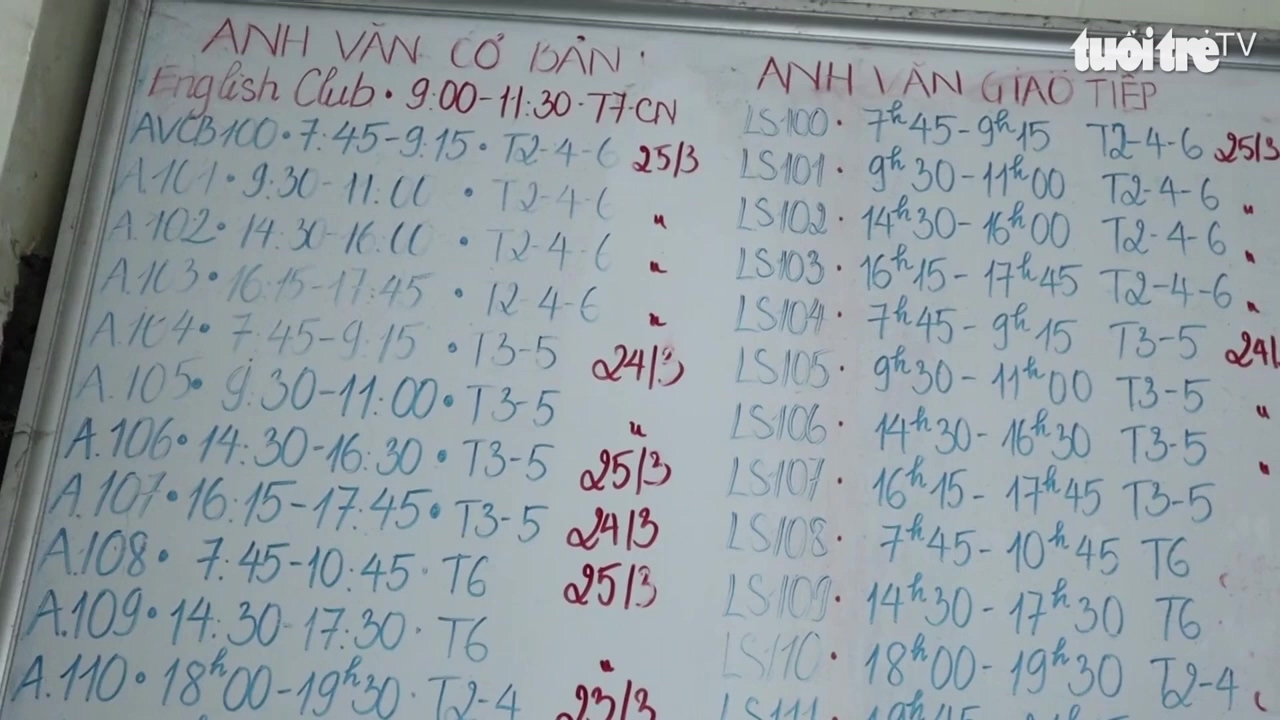 tuổi trẻ TV
ANH VĂN CƠ BẢN
English Club • 9:00-11:30 • T7-CN
AVCB100 • 7:45-9:15 • T2-4-6 25/3
A.101 • 9:30-11:00 • T2-4-6 "
A.102 • 14:30-16:00 • T2-4-6 "
A.103 • 16:15-17:45 • T2-4-6 "
A.104 • 7:45-9:15 • T3-5 24/3
A.105 • 9:30-11:00 • T3-5 "
A.106 • 14:30-16:30 • T3-5 25/3
A.107 • 16:15-17:45 • T3-5 24/3
A.108 • 7:45-10:45 • T6 25/3
A.109 • 14:30-17:30 • T6 "
A.110 • 18h00-19h30 • T2-4 23/3
ANH VĂN GIAO TIẾP
LS100 • 7h45-9h15 T2-4-6 25/3
LS101 • 9h30-11h00 T2-4-6 "
LS102 • 14h30-16h00 T2-4-6 "
LS103 • 16h15-17h45 T2-4-6 "
LS104 • 7h45-9h15 T3-5 24/
LS105 • 9h30-11h00 T3-5 "
LS106 • 14h30-16h30 T3-5 "
LS107 • 16h15-17h45 T3-5
LS108 • 7h45-10h45 T6
LS109 • 14h30-17h30 T6
LS110 • 18h00-19h30 T2-4
LS111